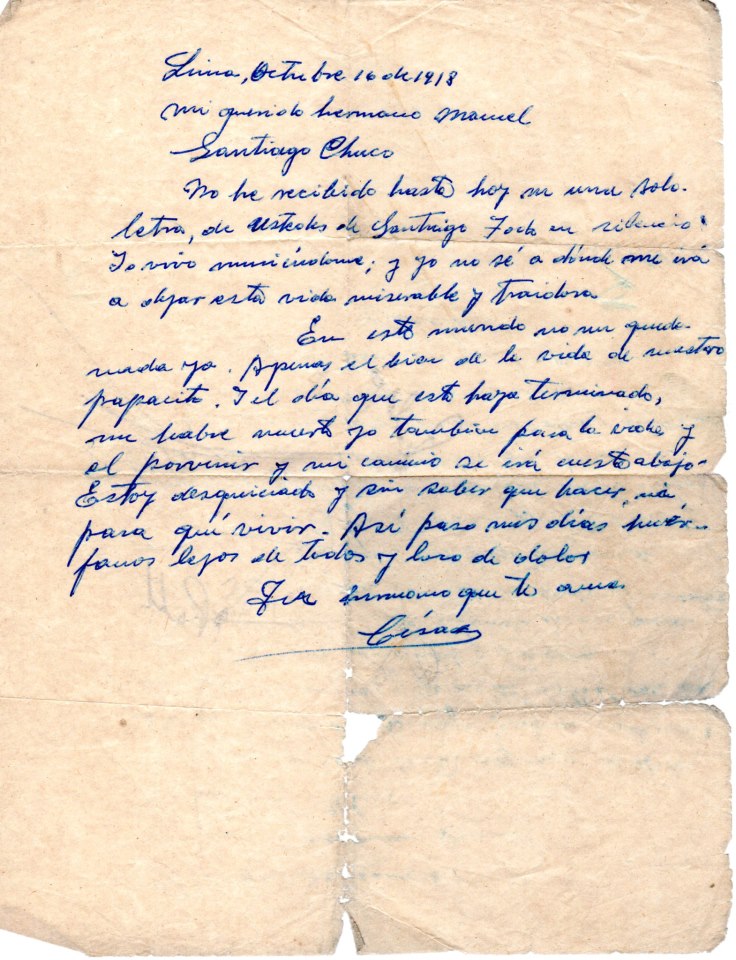 Lima, Octubre 16 de 1918
mi querido hermano Manuel
Santiago Chuco
No he recibido hasta hoy ni una sola
letra, de Ustedes de Santiago Todo en silencio
Yo vivo muriéndome; y yo no sé a dónde me irá
a dejar esta vida miserable y traidora
En este mundo no me queda
nada ya. Apenas el bien de la vida de nuestro
papacito. Y el día que esto haya terminado,
me habré muerto yo también para la vida y
el porvenir y mi camino se irá cuesta abajo.
Estoy desquiciado y sin saber que hacer, ni
para qué vivir. Así paso mis días huér-
fanos lejos de todos y loco de dolor
Tu hermano que te ama
César